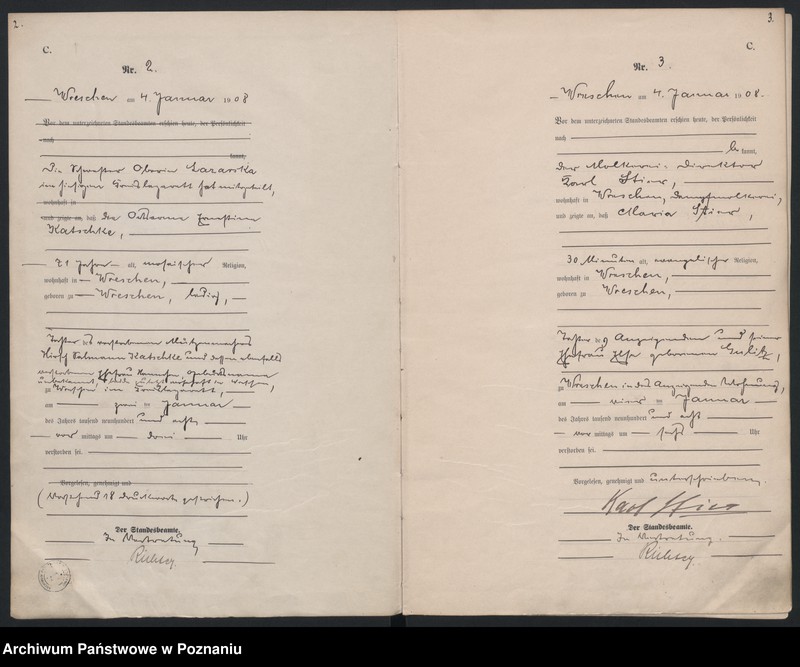 2.
C.
Nr. 2.
Wreschen am 4. Januar 1908
Vor dem unterzeichneten Standesbeamten erschien heute, der Persönlichkeit
nach
kannt,
Die Schwester Oberin Lazariska
im hiesigen Kreislazarett hat mitgeteilt,
wohnhaft in
und zeigte an, daß die Ortsarme Ernestine
Katschke,
71 Jahre alt, mosaischer Religion,
wohnhaft in Wreschen,
geboren zu Wreschen, ledig,
Tochter des verstorbenen Mützenmachers
Hirsch Salmann Katschke und dessen ebenfalls
verstorbenen Ehefrau Geburtsname
unbekannt, beide zuletzt wohnhaft in Wreschen,
zu Wreschen im Kreislazarett,
am zwei ten Januar
des Jahres tausend neunhundert und acht,
vor mittags um drei Uhr
verstorben sei.
Vorgelesen, genehmigt und
(Vorstehend 18 Druckworte gestrichen.)
Der Standesbeamte.
In Vertretung
3.
C.
Nr. 3.
Wreschen am 4. Januar 1908.
Vor dem unterzeichneten Standesbeamten erschien heute, der Persönlichkeit
nach
be kannt,
der Molkerei-Direktor
Karl Stier,
wohnhaft in Wreschen, Dampfmolkerei,
und zeigte an, daß Maria Stier,
30 Minuten alt, evangelischer Religion,
wohnhaft in Wreschen,
geboren zu Wreschen,
Tochter des Anzeigenden und seiner
Ehefrau Else geborenen
zu Wreschen in des Anzeigenden Wohnung,
am vier ten Januar
des Jahres tausend neunhundert und acht
vor mittags um sechs Uhr
verstorben sei.
Vorgelesen, genehmigt und unterschrieben.
Karl Stier
Der Standesbeamte.
In Vertretung.
Archiwum Państwowe w Poznaniu